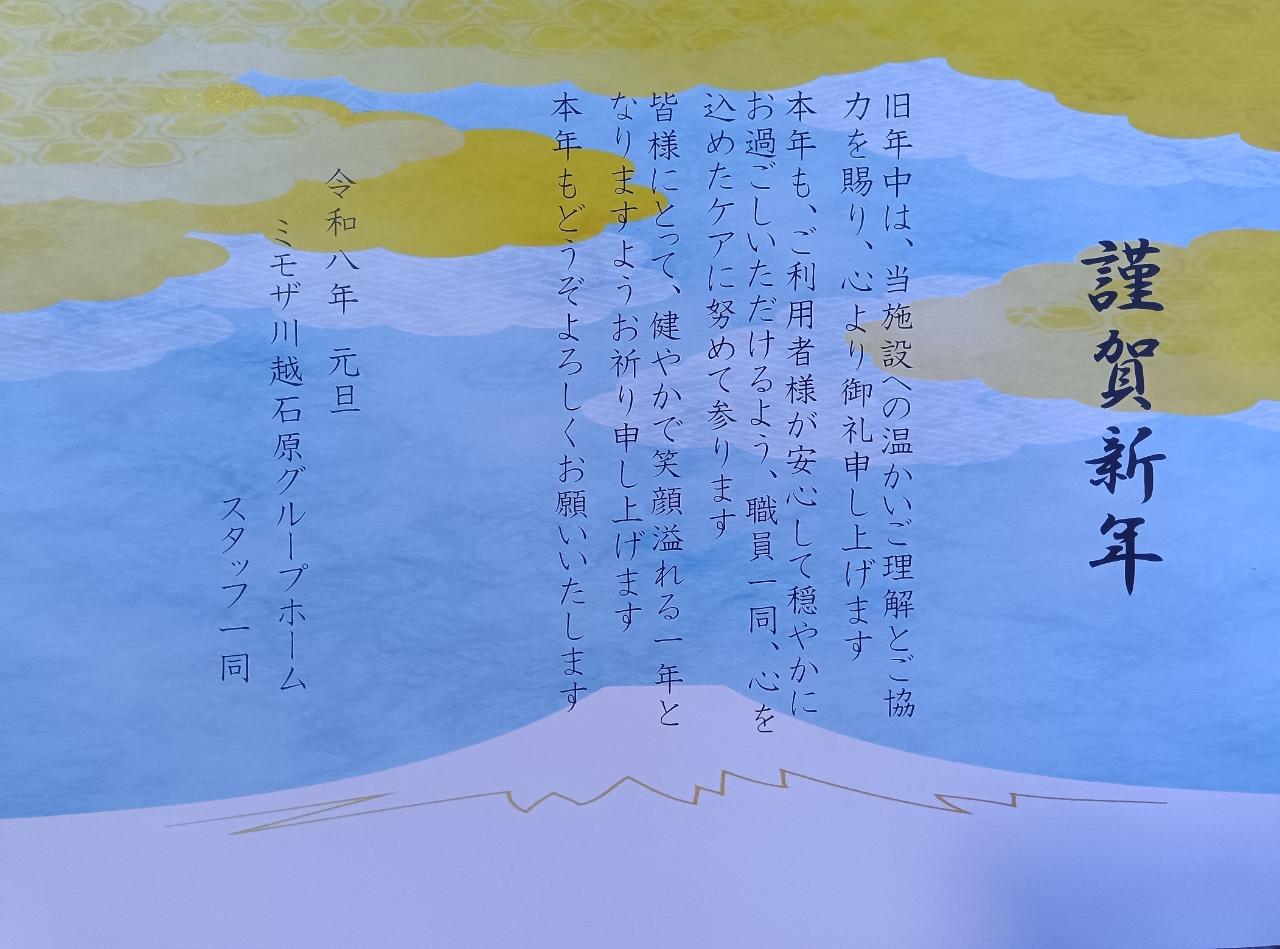 謹賀新年
旧年中は、当施設への温かいご理解とご協
力を賜り、心より御礼申し上げます
本年も、ご利用者様が安心して穏やかに
お過ごしいただけるよう、職員一同、心を
込めたケアに努めて参ります
皆様にとって、健やかで笑顔溢れる一年と
なりますようお祈り申し上げます
本年もどうぞよろしくお願いいたします
令和八年 元旦
ミモザ川越石原グループホーム
スタッフ一同